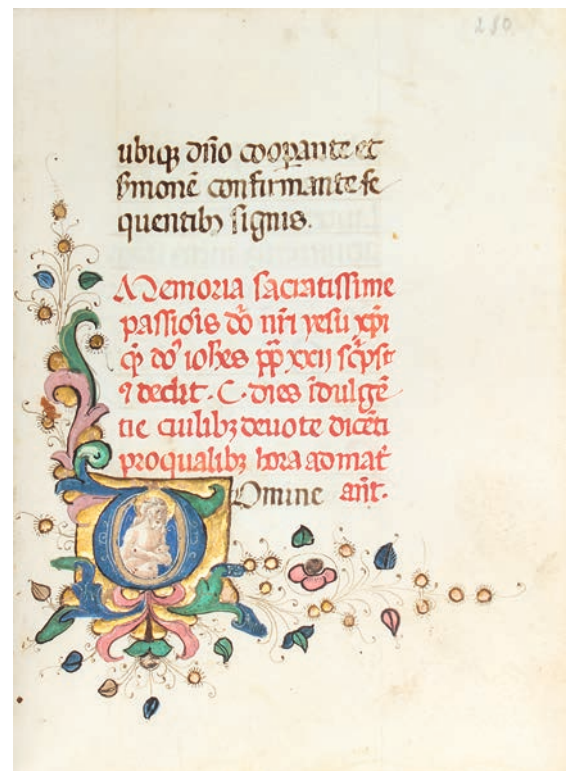 280
ubiqꝫ dño cooꝑante et
smonē confirmante se
quentibꝫ signis.
Memoria sacratissime
passiōis dō nr̄i yesu xp̄i
q̄ꝫ do' ioh̄es pp̄ xxij sc̄pst
⁊ dedit . C . dies īdulgē
tie cuilibꝫ deuote dicēti
pro qualibꝫ hora ad mat̄
Omine an̄t.